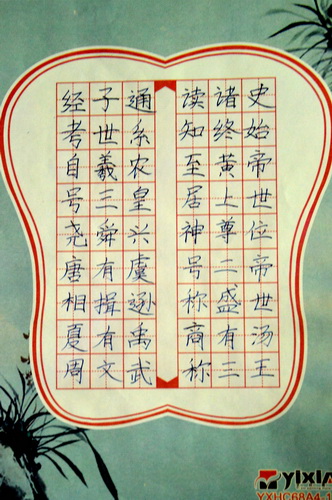 经子通读诸史
考世系知终始
自羲农至黄帝
号三皇居上世
尧舜兴神尊位
唐有虞号二帝
相揖逊称盛世
夏有禹商有汤
周文武称三王